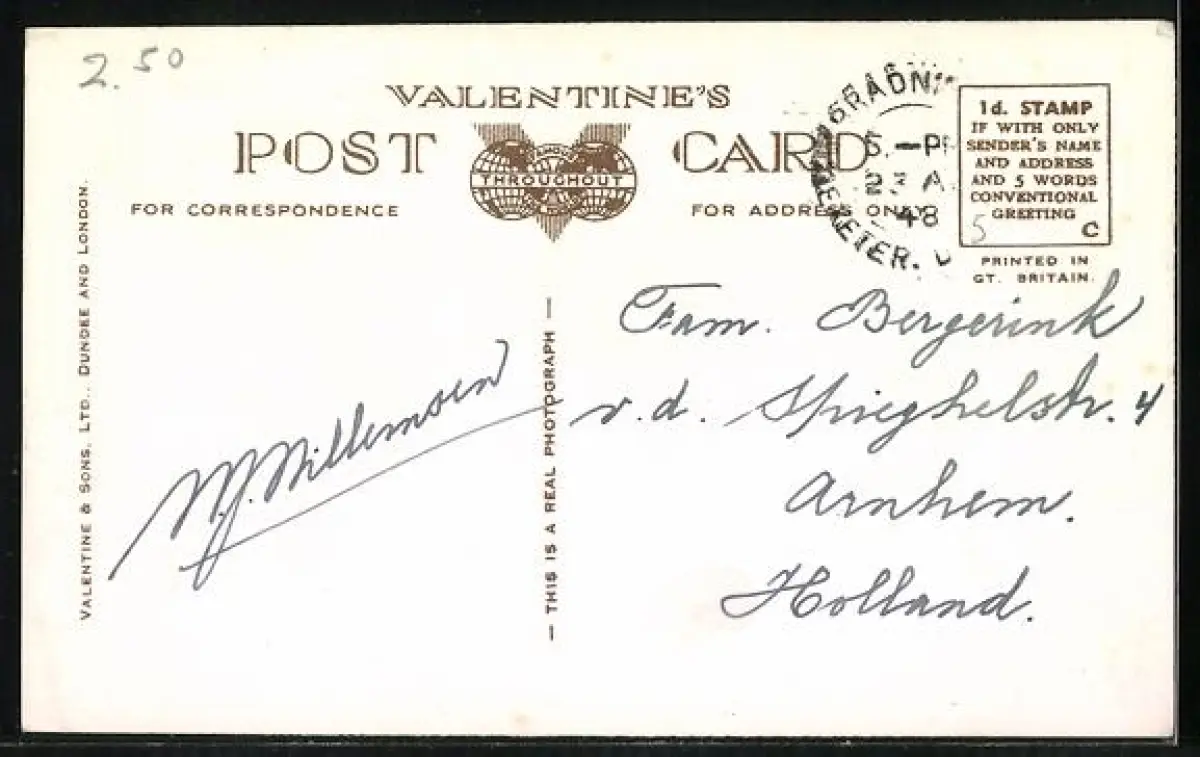 2.50
VALENTINE'S
POST CARD
THROUGHOUT
FOR CORRESPONDENCE
FOR ADDRESS ONLY
1d. STAMP
IF WITH ONLY
SENDER'S NAME
AND ADDRESS
AND 5 WORDS
CONVENTIONAL
GREETING
5 C
PRINTED IN
GT. BRITAIN.
48
EXETER.
VALENTINE & SONS, LTD., DUNDEE AND LONDON.
— THIS IS A REAL PHOTOGRAPH —
W.J. Willemsen
Fam. Bergerink
v.d. Spieghelstr. 4
Arnhem.
Holland.